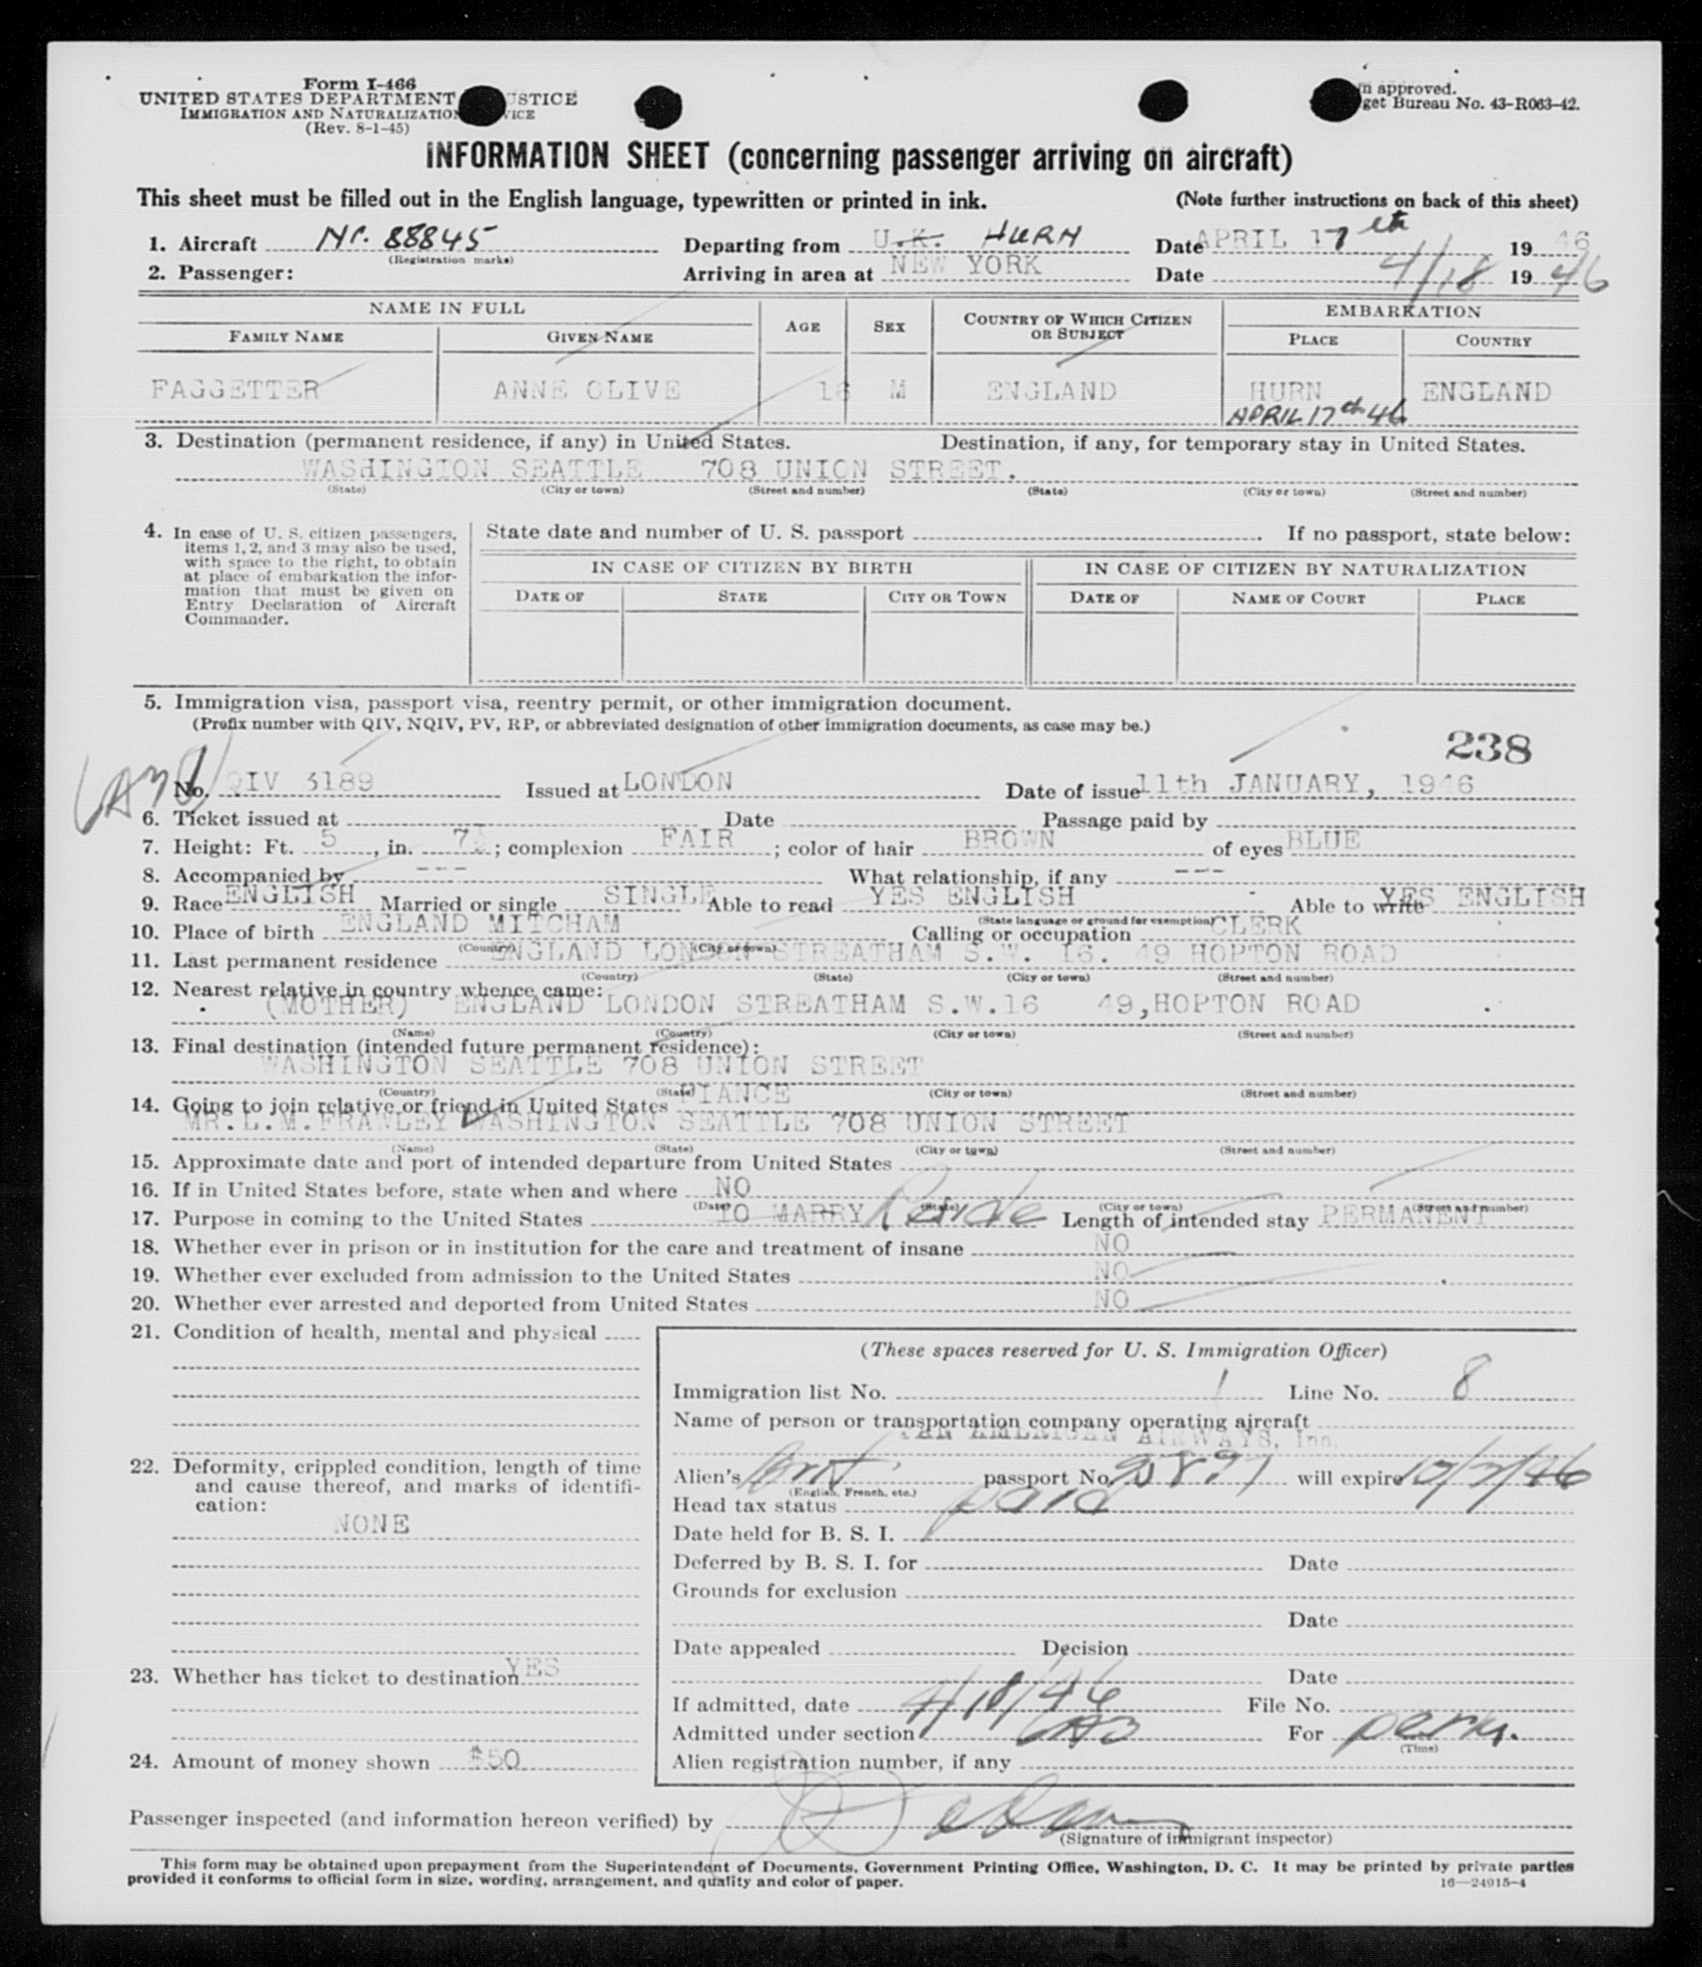 Form I-466
UNITED STATES DEPARTMENT JUSTICE
IMMIGRATION AND NATURALIZATION SERVICE
(Rev. 8-1-45)
approved.
get Bureau No. 43-R063-42.
INFORMATION SHEET (concerning passenger arriving on aircraft)
This sheet must be filled out in the English language, typewritten or printed in ink. (Note further instructions on back of this sheet)
1. Aircraft NC. 88845 Departing from U.K. HURN Date APRIL 17 th 19 46
(Registration marks)
2. Passenger: Arriving in area at NEW YORK Date 4/18 19 46
NAME IN FULL AGE SEX COUNTRY OF WHICH CITIZEN OR SUBJECT EMBARKATION
FAMILY NAME GIVEN NAME PLACE COUNTRY
FAGGETTER ANNE OLIVE 18 M ENGLAND HURN ENGLAND
APRIL 17th 46
3. Destination (permanent residence, if any) in United States. Destination, if any, for temporary stay in United States.
WASHINGTON SEATTLE 708 UNION STREET.
(State) (City or town) (Street and number) (State) (City or town) (Street and number)
4. In case of U. S. citizen passengers, items 1, 2, and 3 may also be used, with space to the right, to obtain at place of embarkation the information that must be given on Entry Declaration of Aircraft Commander.
State date and number of U. S. passport If no passport, state below:
IN CASE OF CITIZEN BY BIRTH IN CASE OF CITIZEN BY NATURALIZATION
DATE OF STATE CITY OR TOWN DATE OF NAME OF COURT PLACE
5. Immigration visa, passport visa, reentry permit, or other immigration document.
(Prefix number with QIV, NQIV, PV, RP, or abbreviated designation of other immigration documents, as case may be.)
238
No. QIV 3189 Issued at LONDON Date of issue 11th JANUARY, 1946
6. Ticket issued at Date Passage paid by
7. Height: Ft. 5, in. 7½; complexion FAIR; color of hair BROWN of eyes BLUE
8. Accompanied by --- What relationship, if any ---
9. Race ENGLISH Married or single SINGLE Able to read YES ENGLISH Able to write YES ENGLISH
(State language or ground for exemption)
10. Place of birth ENGLAND MITCHAM Calling or occupation CLERK
(Country) (City or town)
11. Last permanent residence ENGLAND LONDON STREATHAM S.W. 16. 49 HOPTON ROAD
(Country) (State) (City or town) (Street and number)
12. Nearest relative in country whence came:
(MOTHER) ENGLAND LONDON STREATHAM S.W.16 49,HOPTON ROAD
(Name) (Country) (City or town) (Street and number)
13. Final destination (intended future permanent residence):
WASHINGTON SEATTLE 708 UNION STREET
(Country) (State) (City or town) (Street and number)
14. Going to join relative or friend in United States FIANCE
MR.L.M.FRAWLEY WASHINGTON SEATTLE 708 UNION STREET
(Name) (State) (City or town) (Street and number)
15. Approximate date and port of intended departure from United States
16. If in United States before, state when and where NO
(Date) (State) (City or town) (Street and number)
17. Purpose in coming to the United States TO MARRY Reside Length of intended stay PERMANENT
18. Whether ever in prison or in institution for the care and treatment of insane NO
19. Whether ever excluded from admission to the United States NO
20. Whether ever arrested and deported from United States NO
21. Condition of health, mental and physical
22. Deformity, crippled condition, length of time and cause thereof, and marks of identification:
NONE
23. Whether has ticket to destination YES
24. Amount of money shown $50
(These spaces reserved for U. S. Immigration Officer)
Immigration list No. 1 Line No. 8
Name of person or transportation company operating aircraft
PAN AMERICAN AIRWAYS, Inc.
Alien's Brit. passport No. will expire 12/7/46
(English, French, etc.)
Head tax status paid
Date held for B. S. I.
Deferred by B. S. I. for Date
Grounds for exclusion
Date
Date appealed Decision
Date
If admitted, date 4/18/46 File No.
Admitted under section 6A3 For perm.
(Time)
Alien registration number, if any
Passenger inspected (and information hereon verified) by
(Signature of immigrant inspector)
This form may be obtained upon prepayment from the Superintendent of Documents, Government Printing Office, Washington, D. C. It may be printed by private parties
provided it conforms to official form in size, wording, arrangement, and quality and color of paper. 16—24915-4